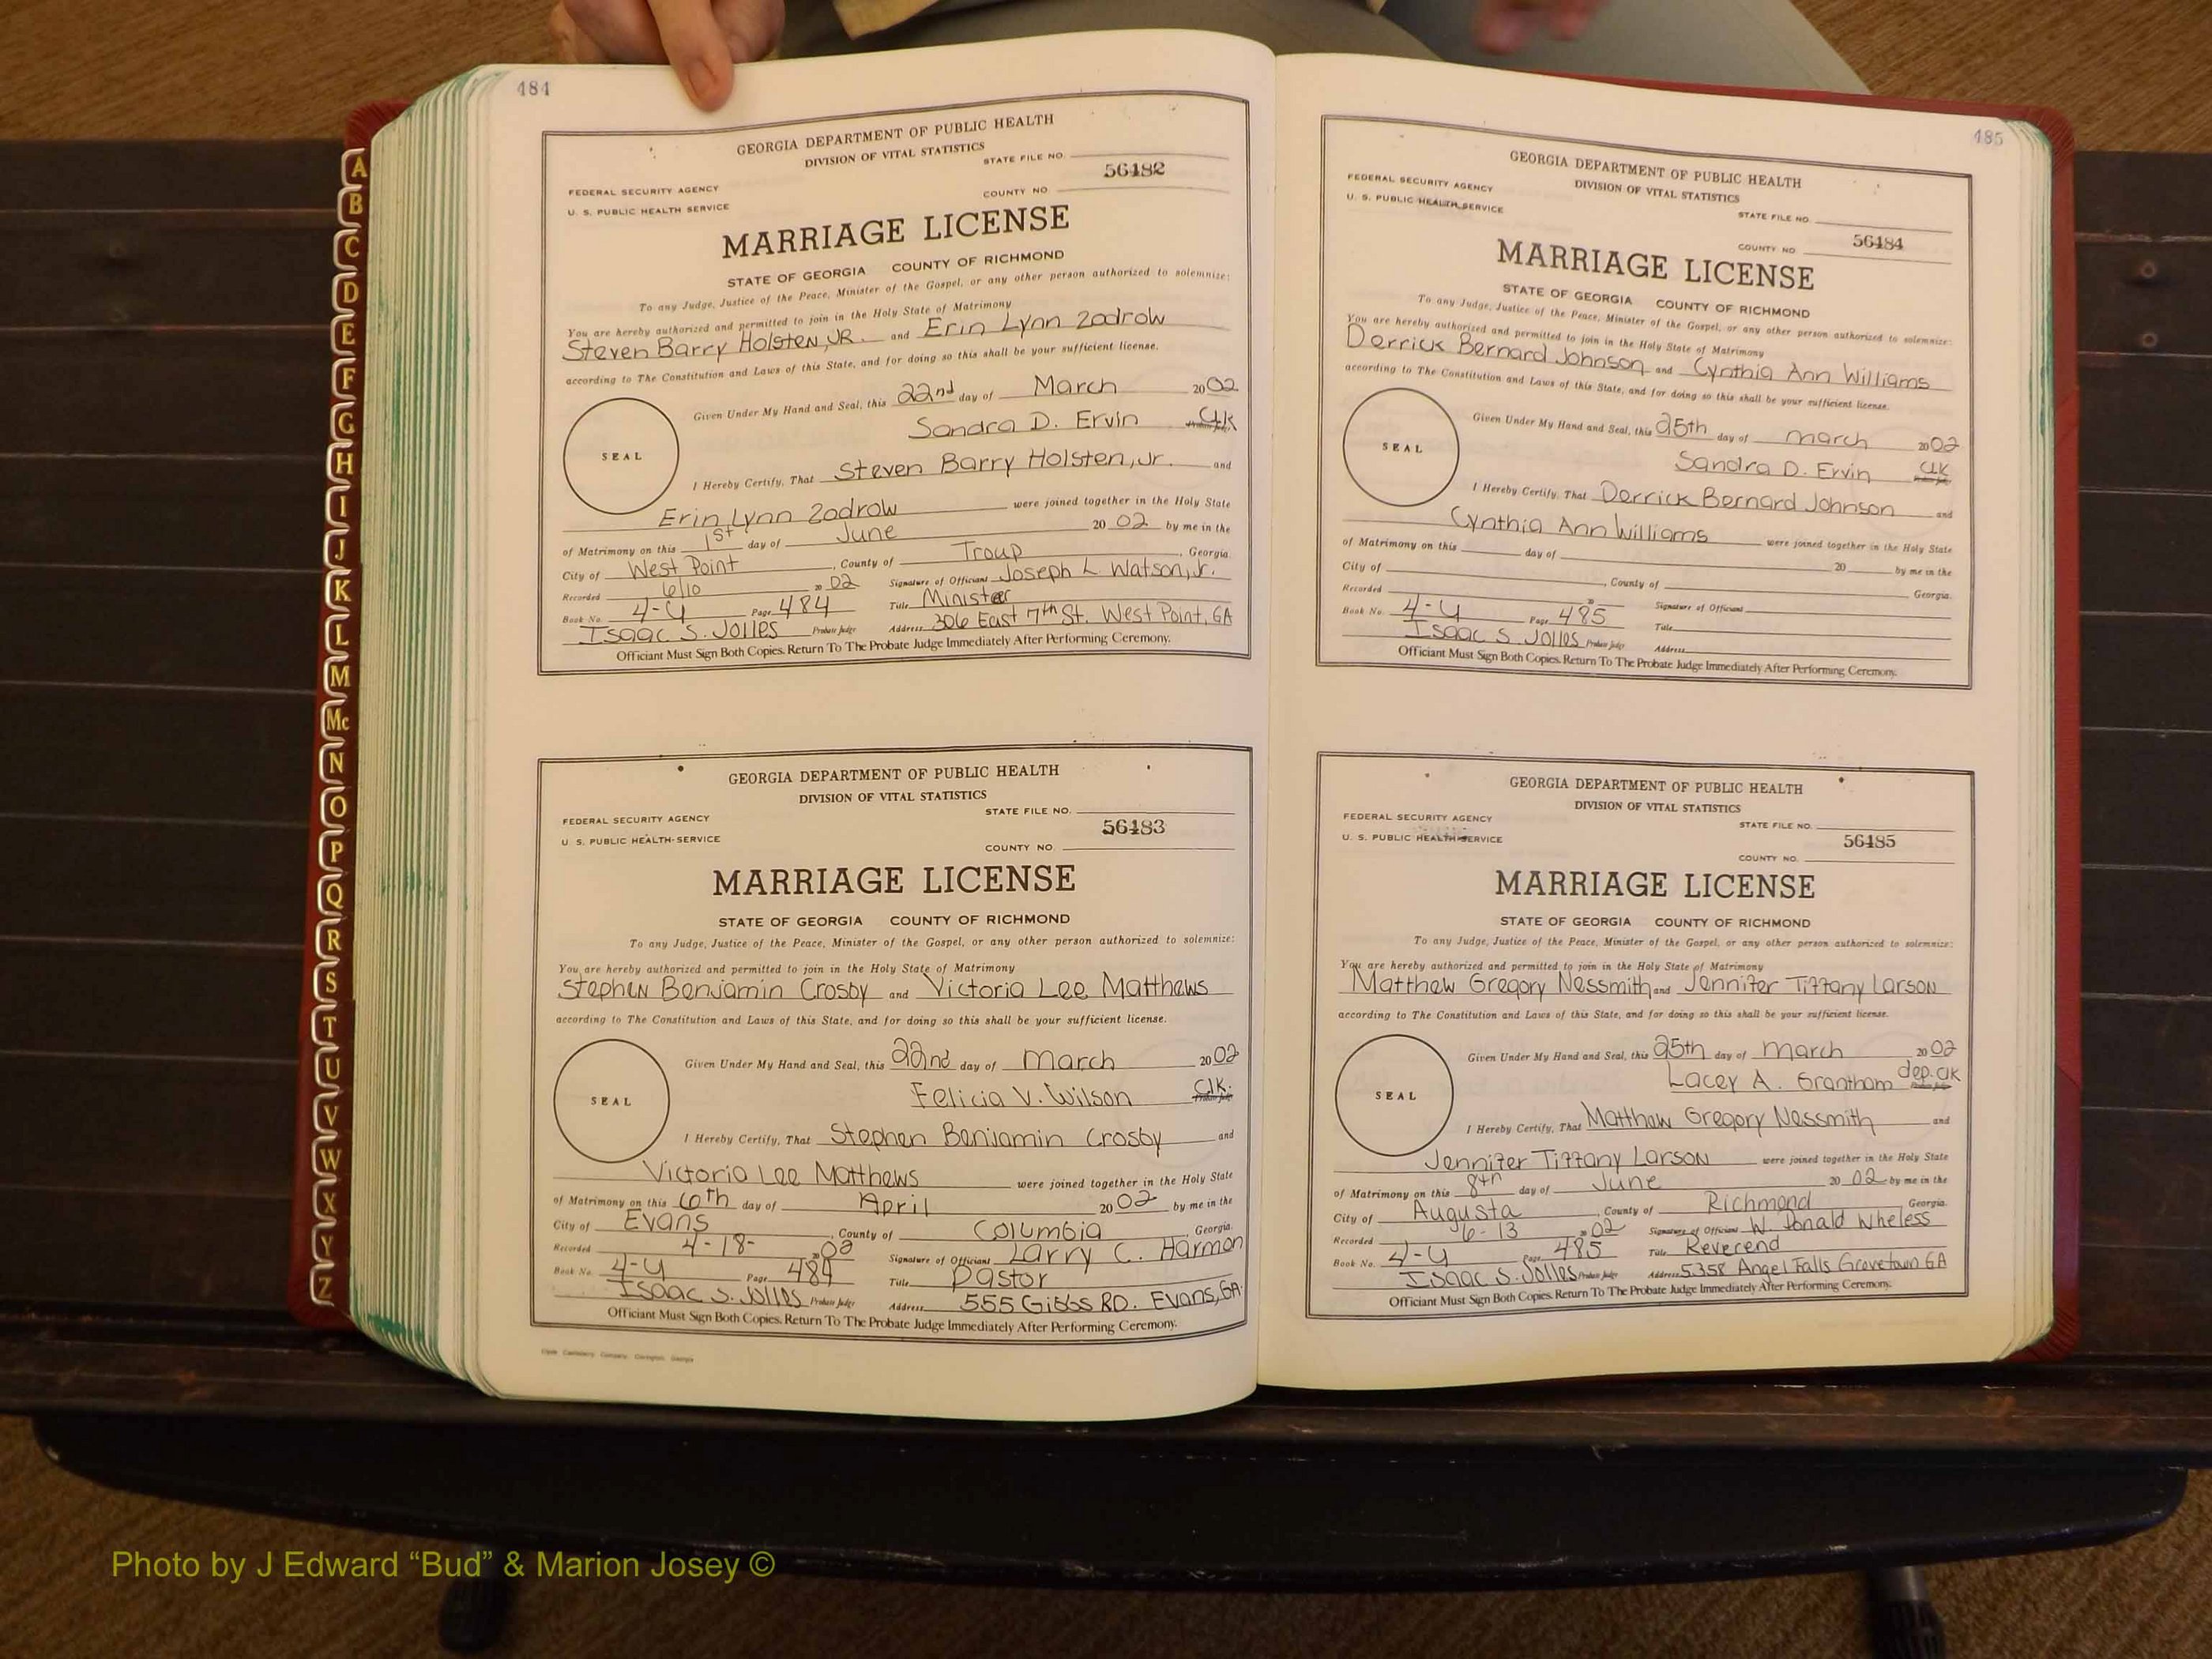 484
GEORGIA DEPARTMENT OF PUBLIC HEALTH
DIVISION OF VITAL STATISTICS
STATE FILE NO.
56482
FEDERAL SECURITY AGENCY
COUNTY NO
U. S. PUBLIC HEALTH SERVICE
MARRIAGE LICENSE
STATE OF GEORGIA COUNTY OF RICHMOND
To any Judge, Justice of the Peace, Minister of the Gospel, or any other person authorized to solemnize:
You are hereby authorized and permitted to join in the Holy State of Matrimony
Steven Barry Holsten, JR. and Erin Lynn Zodrow
according to The Constitution and Laws of this State, and for doing so this shall be your sufficient license.
Given Under My Hand and Seal, this 22nd day of March 2002
Sandra D. Ervin Clk
SEAL
I Hereby Certify, That Steven Barry Holsten, Jr. and
Erin Lynn Zodrow were joined together in the Holy State
of Matrimony on this 1st day of June 20 02 by me in the
City of West Point, County of Troup, Georgia.
Recorded 6/10 20 02 Signature of Officiant Joseph L. Watson, Jr.
Book No. 4-U Page 484 Title Minister
Isaac S. Jolles Probate Judge Address 306 East 7th St. West Point, GA
Officiant Must Sign Both Copies. Return To The Probate Judge Immediately After Performing Ceremony.
GEORGIA DEPARTMENT OF PUBLIC HEALTH
DIVISION OF VITAL STATISTICS
STATE FILE NO.
FEDERAL SECURITY AGENCY
56483
U. S. PUBLIC HEALTH-SERVICE
COUNTY NO.
MARRIAGE LICENSE
STATE OF GEORGIA COUNTY OF RICHMOND
To any Judge, Justice of the Peace, Minister of the Gospel, or any other person authorized to solemnize:
You are hereby authorized and permitted to join in the Holy State of Matrimony
Stephen Benjamin Crosby and Victoria Lee Matthews
according to The Constitution and Laws of this State, and for doing so this shall be your sufficient license.
Given Under My Hand and Seal, this 22nd day of March 2002
Felicia V. Wilson Clk.
SEAL
I Hereby Certify, That Stephen Benjamin Crosby and
Victoria Lee Matthews were joined together in the Holy State
of Matrimony on this 6th day of April 20 02 by me in the
City of Evans, County of Columbia, Georgia.
Recorded 4-18- 20 02 Signature of Officiant Larry C. Harmon
Book No. 4-U Page 484 Title Pastor
Isaac S. Jolles Probate Judge Address 555 Gibbs RD. Evans, GA.
Officiant Must Sign Both Copies. Return To The Probate Judge Immediately After Performing Ceremony.
485
GEORGIA DEPARTMENT OF PUBLIC HEALTH
DIVISION OF VITAL STATISTICS
FEDERAL SECURITY AGENCY
U. S. PUBLIC HEALTH SERVICE
STATE FILE NO.
COUNTY NO. 56484
MARRIAGE LICENSE
STATE OF GEORGIA COUNTY OF RICHMOND
To any Judge, Justice of the Peace, Minister of the Gospel, or any other person authorized to solemnize:
You are hereby authorized and permitted to join in the Holy State of Matrimony
Derrick Bernard Johnson and Cynthia Ann Williams
according to The Constitution and Laws of this State, and for doing so this shall be your sufficient license.
Given Under My Hand and Seal, this 25th day of March 2002
Sandra D. Ervin Clk
SEAL
I Hereby Certify, That Derrick Bernard Johnson and
Cynthia Ann Williams were joined together in the Holy State
of Matrimony on this day of 20 by me in the
City of , County of Georgia.
Recorded 20 Signature of Officiant
Book No. 4-U Page 485 Title
Isaac S. Jolles Probate Judge Address
Officiant Must Sign Both Copies. Return To The Probate Judge Immediately After Performing Ceremony.
GEORGIA DEPARTMENT OF PUBLIC HEALTH
DIVISION OF VITAL STATISTICS
FEDERAL SECURITY AGENCY
STATE FILE NO.
U. S. PUBLIC HEALTH SERVICE
56485
COUNTY NO.
MARRIAGE LICENSE
STATE OF GEORGIA COUNTY OF RICHMOND
To any Judge, Justice of the Peace, Minister of the Gospel, or any other person authorized to solemnize:
You are hereby authorized and permitted to join in the Holy State of Matrimony
Matthew Gregory Nessmith and Jennifer Tiffany Larson
according to The Constitution and Laws of this State, and for doing so this shall be your sufficient license.
Given Under My Hand and Seal, this 25th day of March 20 02
Lacey A. Grantham dep. clk
SEAL
I Hereby Certify, That Matthew Gregory Nessmith and
Jennifer Tiffany Larson were joined together in the Holy State
of Matrimony on this 8th day of June 20 02 by me in the
City of Augusta, County of Richmond Georgia.
Recorded 6-13 20 02 Signature of Officiant W. Donald Wheless
Book No. 4-U Page 485 Title Reverend
Isaac S. Jolles Probate Judge Address 5358 Angel Falls Grovetown GA
Officiant Must Sign Both Copies. Return To The Probate Judge Immediately After Performing Ceremony.
A
B
C
D
E
F
G
H
I
J
K
L
M
Mc
N
O
P
Q
R
S
T
U
V
W
X
Y
Z
Photo by J Edward “Bud” & Marion Josey ©